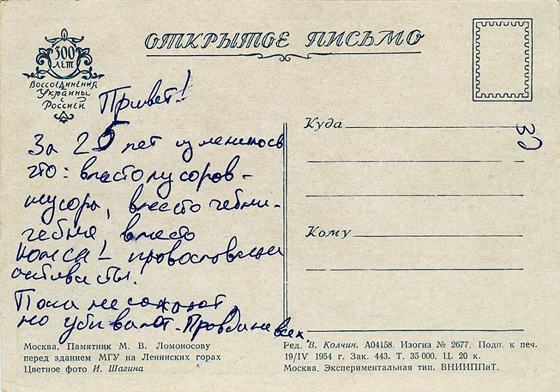 300
ЛЕТ
Воссоединения
Украины
с
Россией
ОТКРЫТОЕ ПИСЬМО
Привет!
За 25 лет изменилось
что: вместо мусоров -
мусора, вместо
вместо
православные
активисты.
Пока не сажают
но убивают. Правда не всех.
Куда
Кому
Москва. Памятник М. В. Ломоносову
перед зданием МГУ на Ленинских горах
Цветное фото И. Шагина
Ред. В. Колчин. А04158. Изогиз № 2677. Подп. к печ.
19/IV 1954 г. Зак. 443. Т. 35 000. Ц. 20 к.
Москва. Экспериментальная тип. ВНИИППиТ.